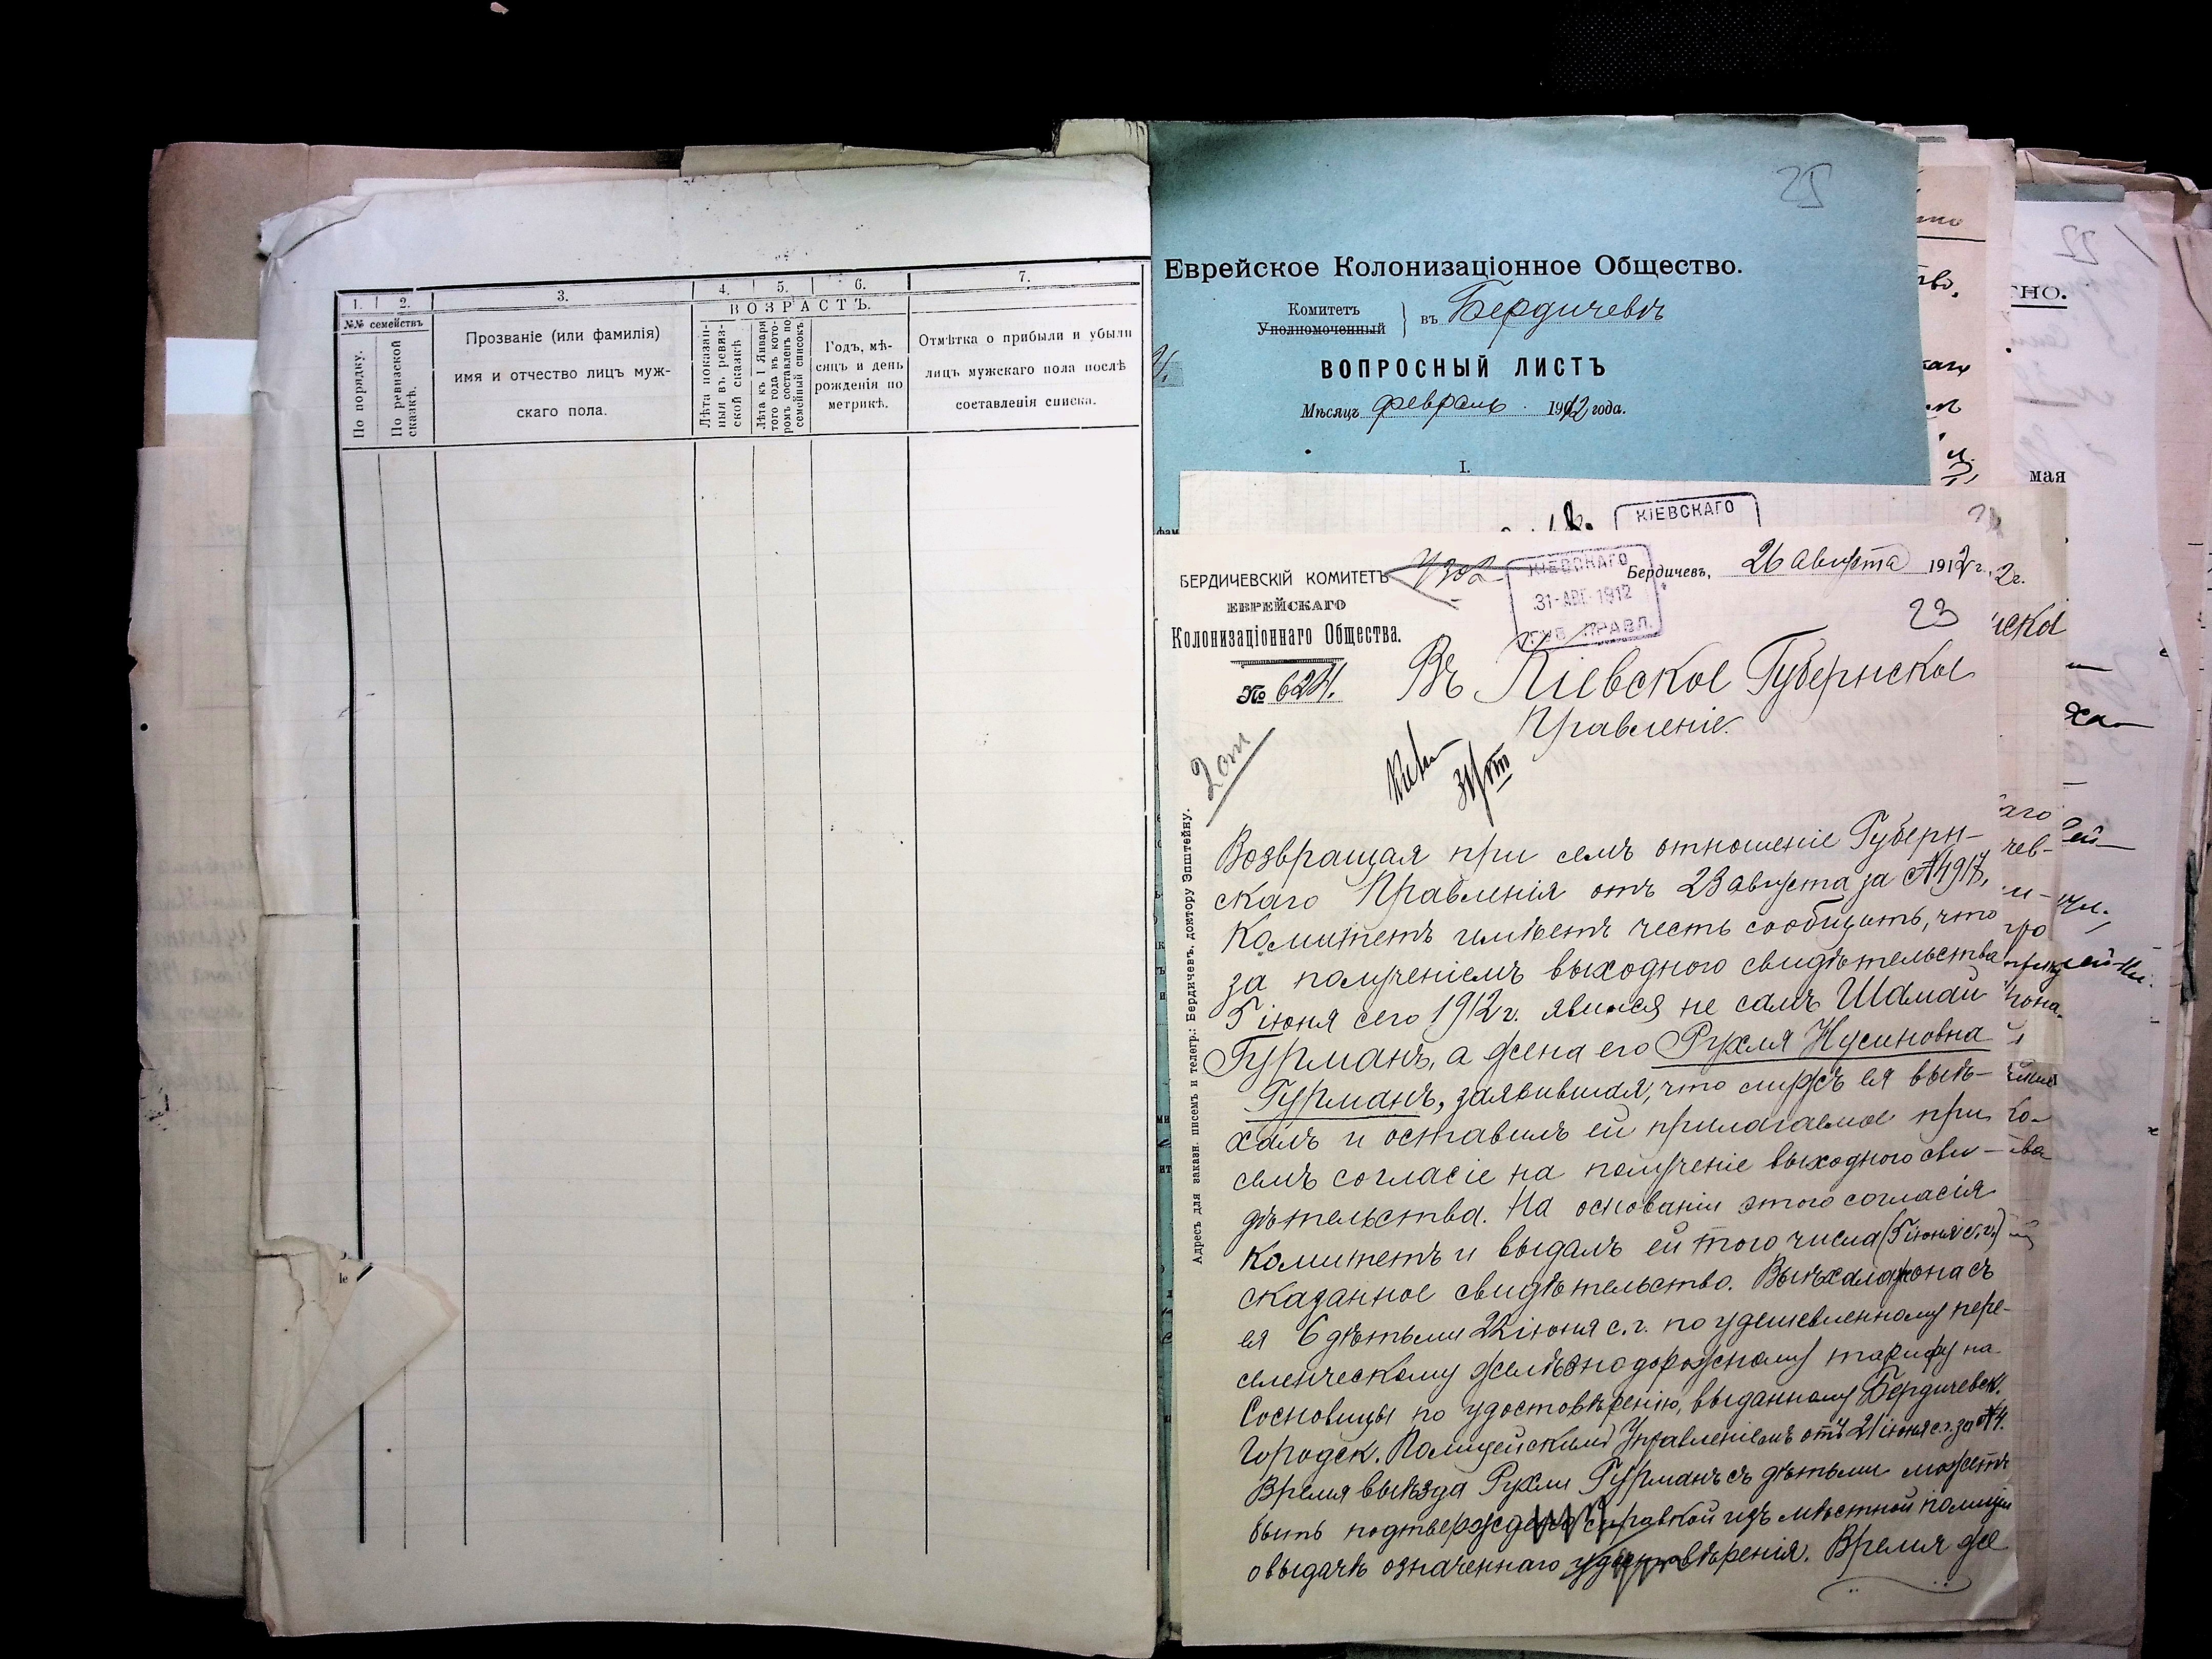 1. 2. 3. 4. 5. 6. 7.
№№ семействъ
По порядку.
По ревизской сказкѣ.
Прозваніе (или фамилія)
имя и отчество лицъ муж-
скаго пола.
ВОЗРАСТЪ.
Лѣта показан-
ныя въ ревиз-
ской сказкѣ
Лѣта къ 1 Января
того года въ кото-
ромъ составленъ по
семейный списокъ
Годъ, мѣ-
сяцъ и день
рожденія по
метрикѣ.
Отмѣтка о прибыли и убыли
лицъ мужскаго пола послѣ
составленія списка.
25
Еврейское Колонизаціонное Общество.
Комитетъ
Уполномоченный
въ Бердичевѣ
ВОПРОСНЫЙ ЛИСТЪ
Мѣсяцъ февраль 1912 года.
I.
КІЕВСКАГО
мая
22
БЕРДИЧЕВСКІЙ КОМИТЕТЪ
ЕВРЕЙСКАГО
Колонизаціоннаго Общества.
№ 624.
КІЕВСКАГО
31-АВГ-1912
ГУБ. ПРАВЛ.
Бердичевъ, 26 августа 1912 г.
23
Въ Кіевское Губернское
Правленіе.
31/VIII
Адресъ для заказн. писемъ и телегр.: Бердичевъ, доктору Эпштейну.
Возвращая при семъ отношеніе Губерн-
скаго Правленія отъ 23 августа за № 4917,
Комитетъ имѣетъ честь сообщить, что
за полученіемъ выходного свидѣтельства
5 іюня сего 1912 г. явился не самъ Шамай
Гурманъ, а жена его Рухля Нусиновна
Гурманъ, заявившая, что мужъ ея выѣ-
халъ и оставилъ ей прилагаемое при
семъ согласіе на полученіе выходного сви-
дѣтельства. На основаніи этого согласія
Комитетъ и выдалъ ей того числа (5 іюня с.г.)
сказанное свидѣтельство. Выѣхала она съ
ея 6 дѣтьми 22 іюня с.г. по удешевленному пере-
селенческому желѣзнодорожному тарифу на
Сосновицы по удостовѣренію, выданному Бердичевск.
Городск. Полицейскимъ Управленіемъ отъ 21 іюня с.г. за № 4.
Время выѣзда Рухли Гурманъ съ дѣтьми можетъ
быть подтверждено справкой изъ мѣстной полиціи
о выдачѣ означеннаго удостовѣренія. Время же